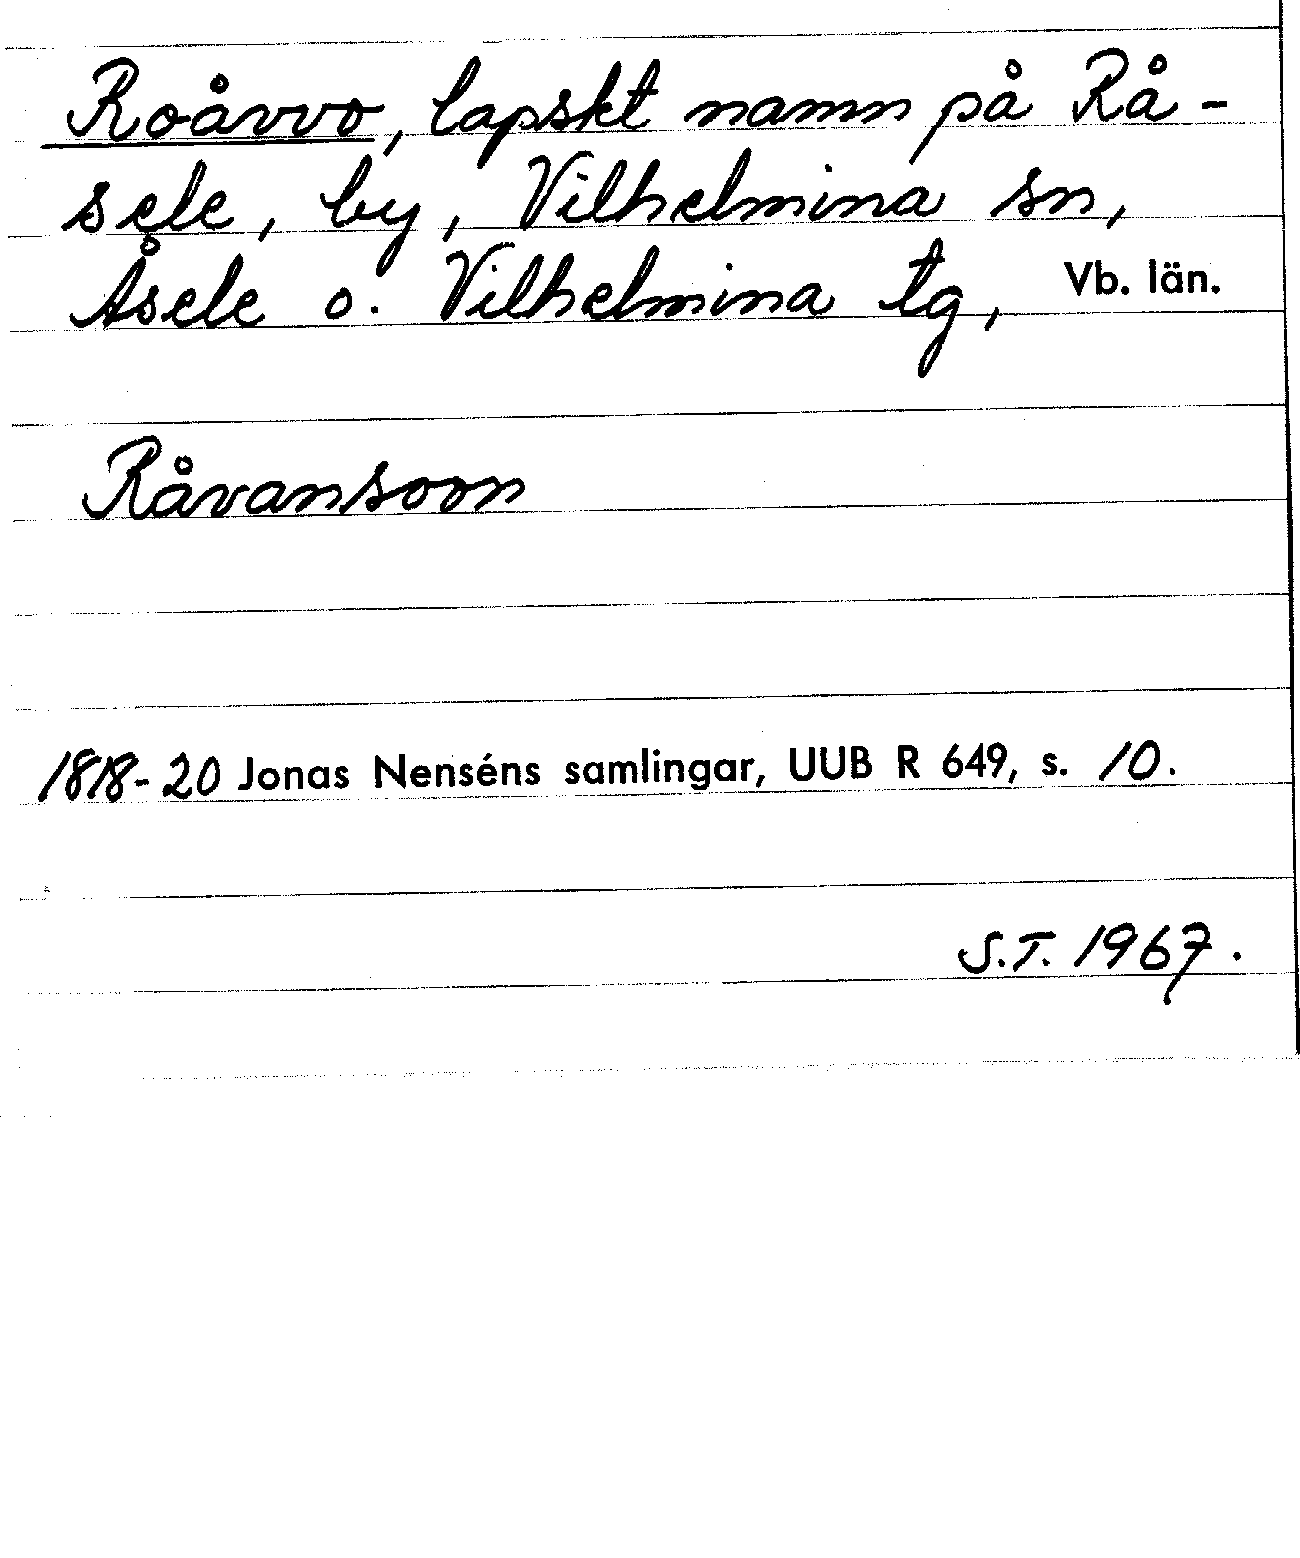 Roåvvo, lapskt namn på Rå-
sele, by, Vilhelmina sn,
Åsele o. Vilhelmina tg, Vb. län.
Råvansoon
1818-20 Jonas Nenséns samlingar, UUB R 649, s. 10.
S.T. 1967.